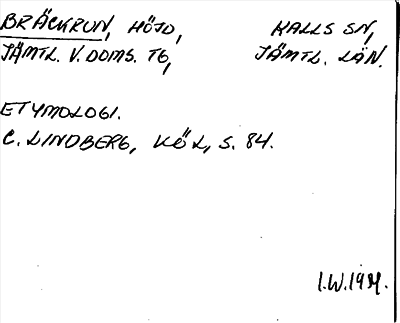 BRÄCKRUN, HÖJD, KALLS SN,
JÄMTL. V. DOMS. TG, JÄMTL. LÄN.
ETYMOLOGI.
C. LINDBERG, KÖL, S. 84.
I.W.